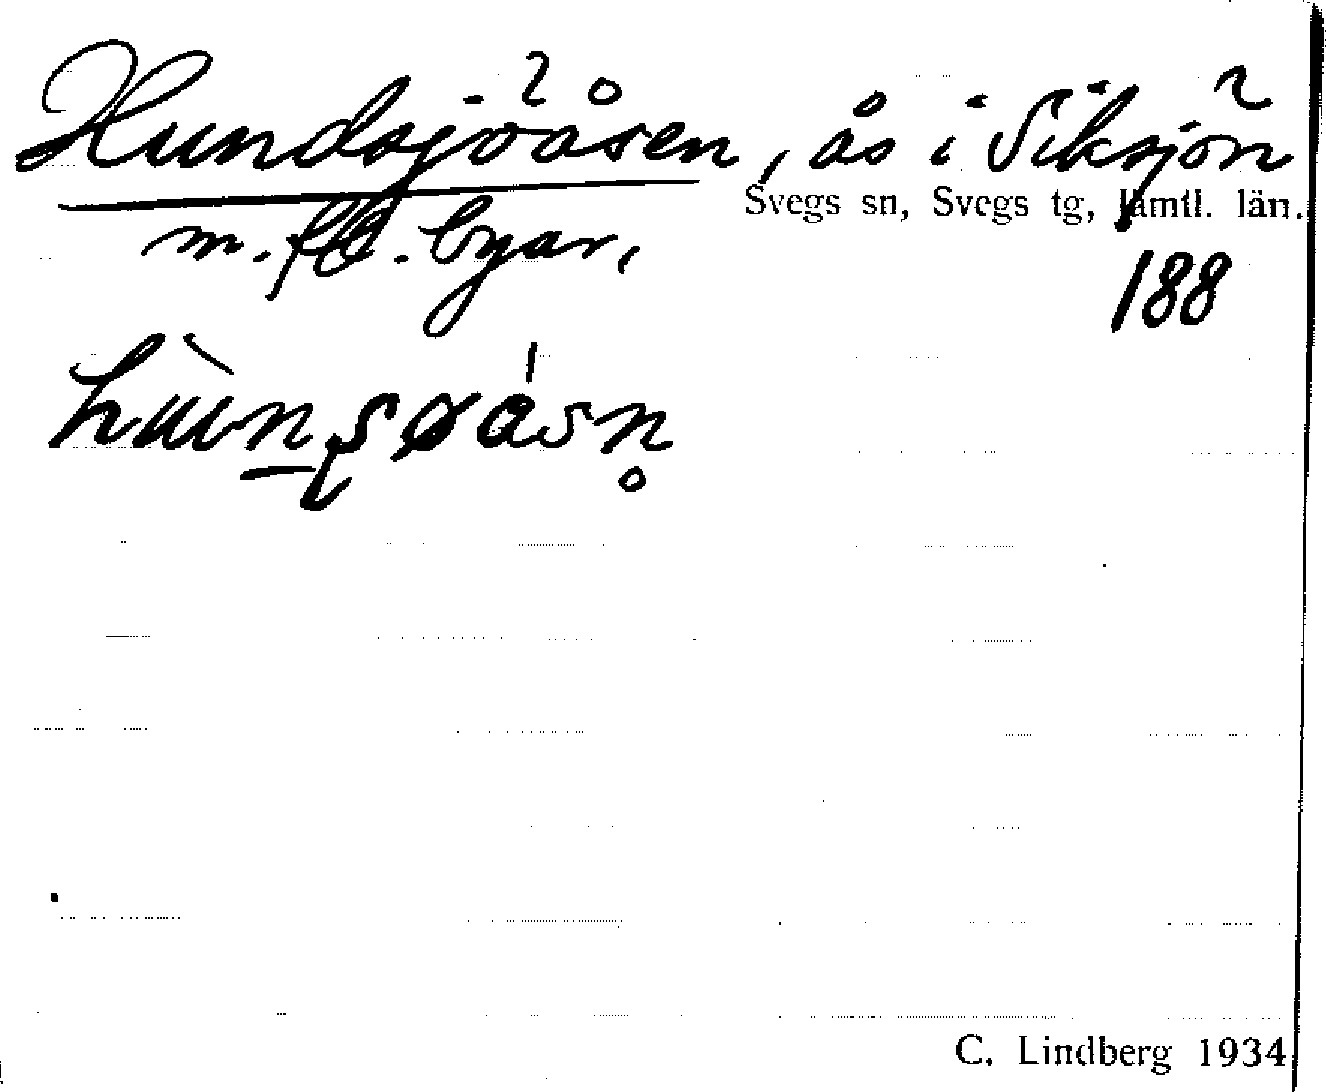 Hundsjöåsen, ås i Siksjön
Svegs sn, Svegs tg, Jämtl. län.
m. fl. byar.
188
C. Lindberg 1934